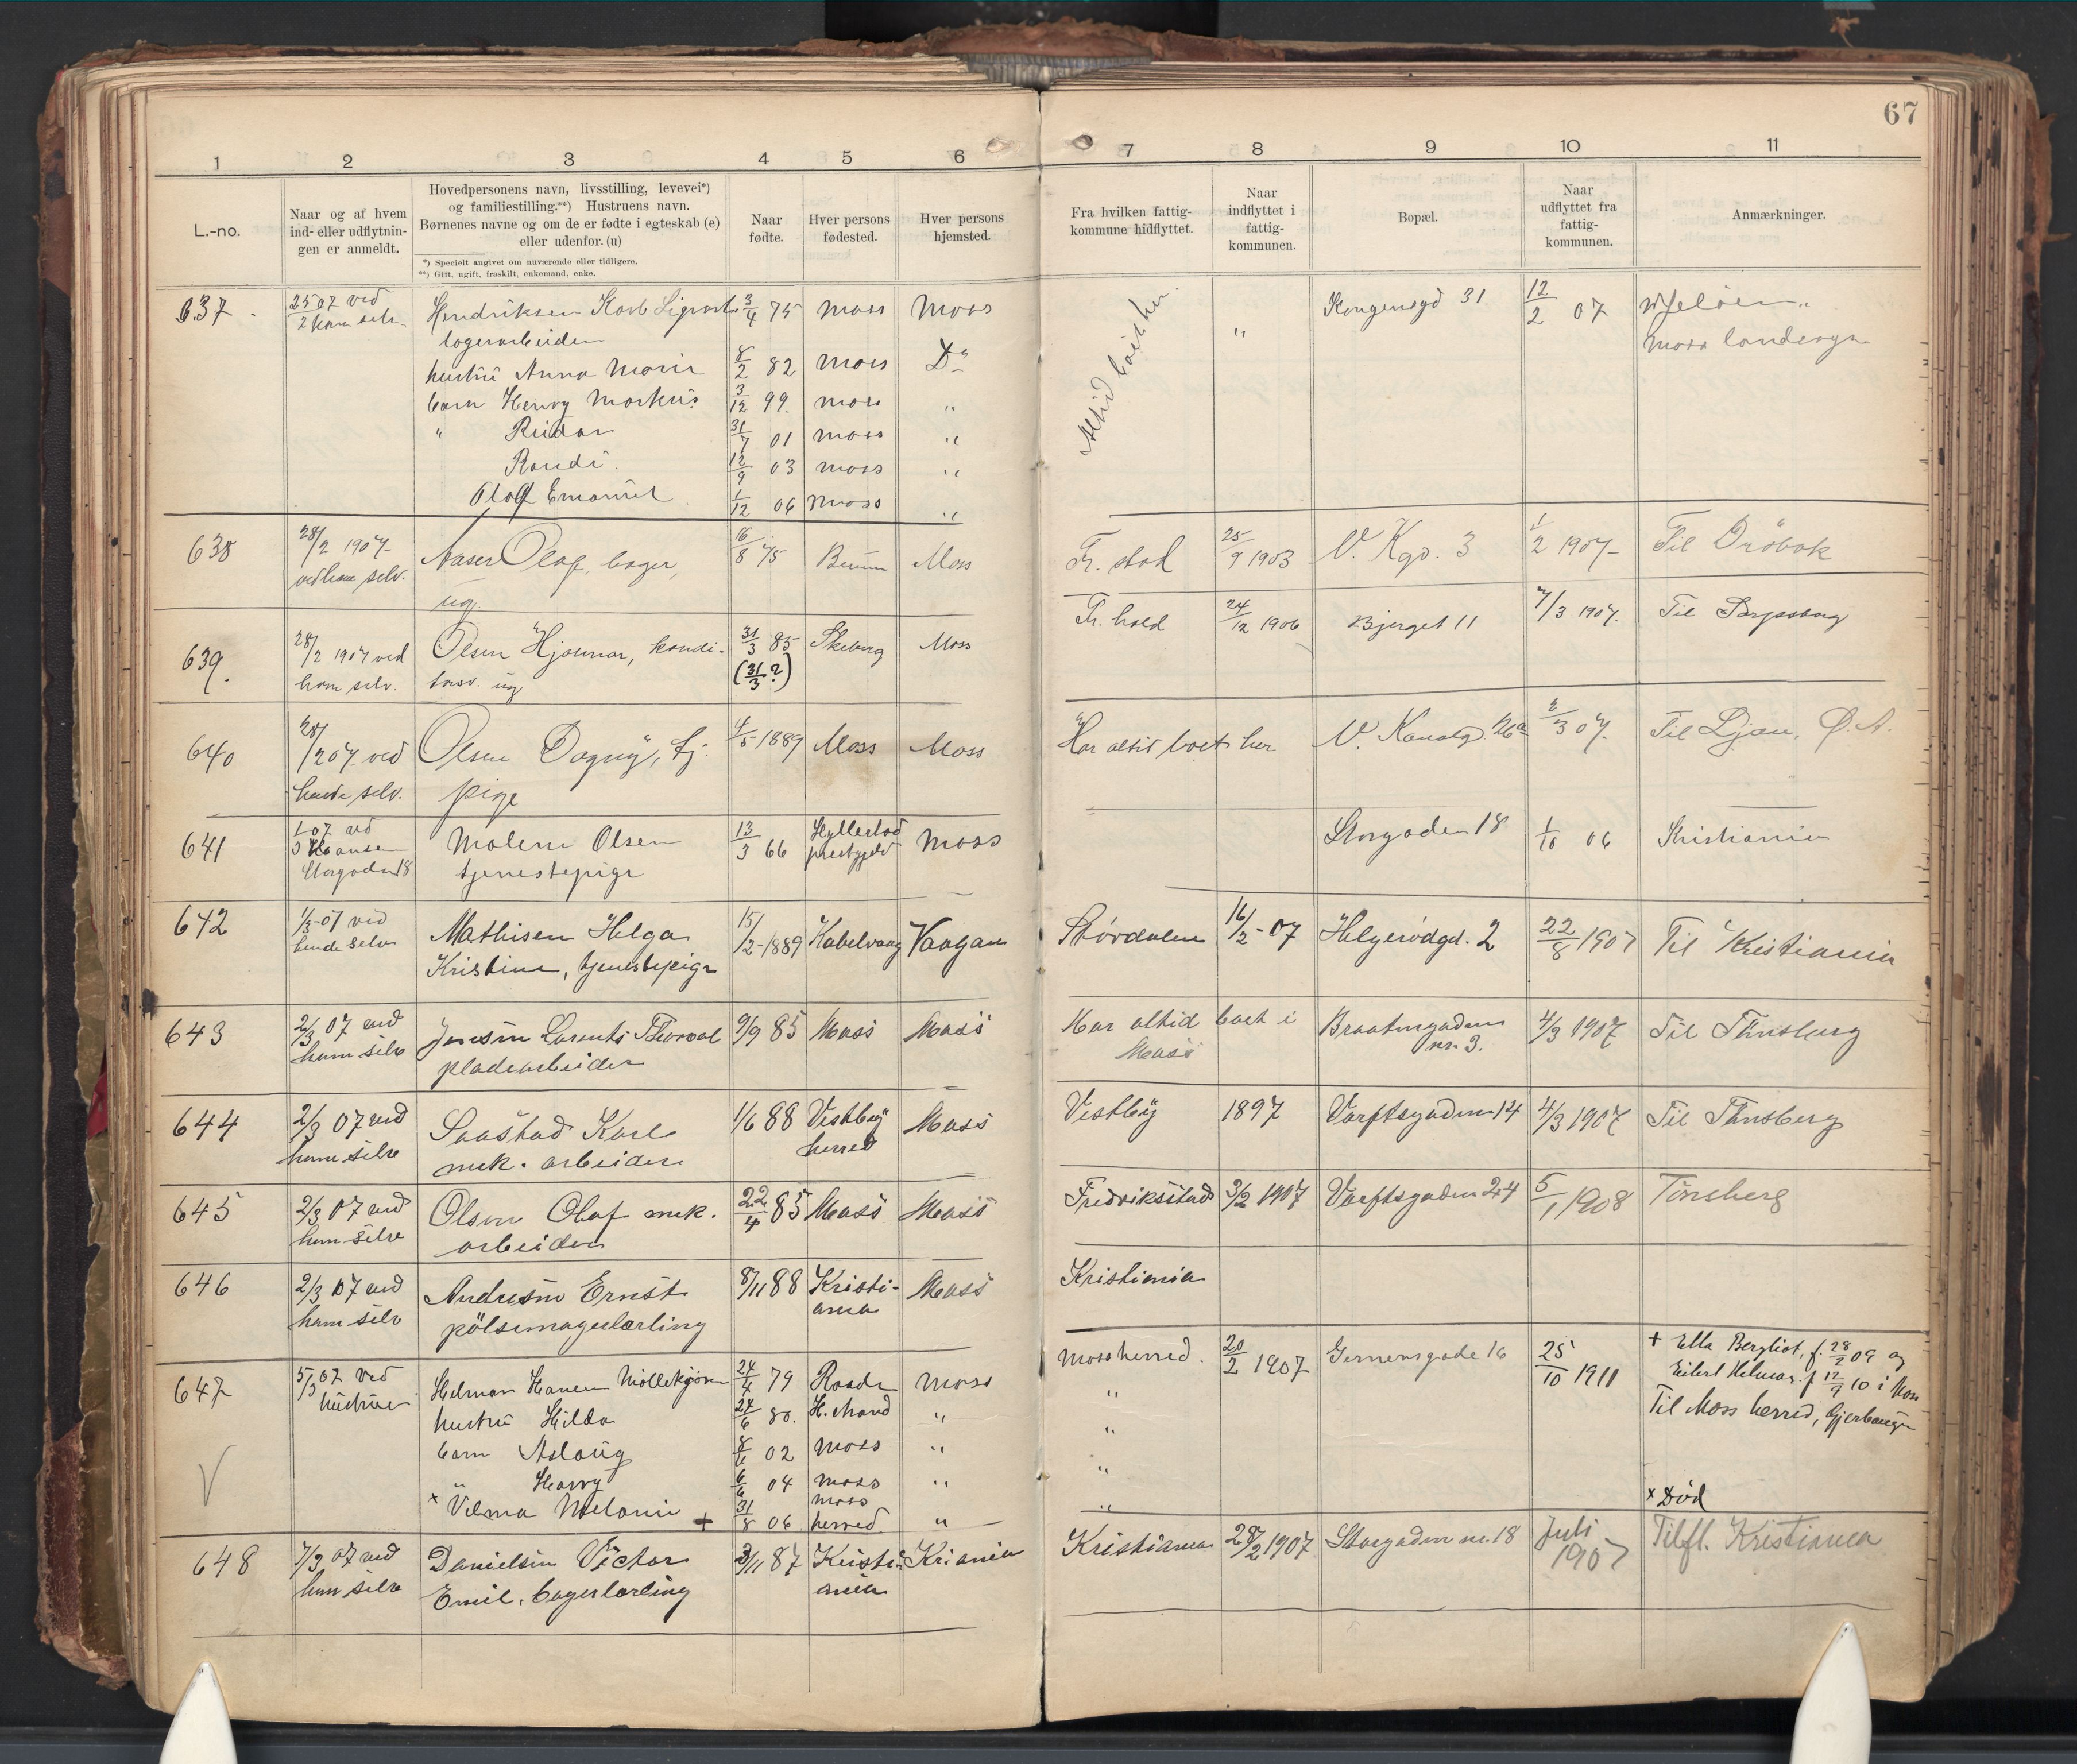 67
1 2 3 4 5 6 7 8 9 10 11
L.-no.
Naar og af hvem
ind- eller udflytnin-
gen er anmeldt.
Hovedpersonens navn, livsstilling, levevei*)
og familiestilling.**) Hustruens navn.
Børnenes navne og om de er fødte i egteskab (e)
eller udenfor. (u)
*) Specielt angivet om nuværende eller tidligere.
**) Gift, ugift, fraskilt, enkemand, enke.
Naar
fødte.
Hver persons
fødested.
Hver persons
hjemsted.
Fra hvilken fattig-
kommune hidflyttet.
Naar
indflyttet i
fattig-
kommunen.
Bopæl.
Naar
udflyttet fra
fattig-
kommunen.
Anmærkninger.
637 25/2 07 ved Hendriksen Karl Sigvart 3/4 75 Moss Moss Altid boet her " Kongensgd 31 12/2 07 Jeløen
ham selv lagerarbeider Moss landsogn
hustru Anna Marie 8/2 82 Moss Do
barn Henry Markus 3/12 99 Moss "
" Reidar 31/7 01 Moss "
Randi 12/9 03 Moss "
Olaf Emanuel 1/12 06 Moss "
638 28/2 1907 Aaser Olaf, bager, 16/8 75 Moss Fr. stad 25/9 1903 V. Kgd. 3 1/2 1907 Til Drøbak
ved ham selv. ug.
639. 28/2 1907 ved Olsen Hjalmar, kondi- 31/3 85 Skeberg Moss Fr. hald 24/12 1906 Bjerget 11 7/3 1907. Til Sarpsborg
ham selv. torsv. ug (31/3?)
640 28/2 07 ved Olsen Dagny, tj. 4/5 1889 Moss Moss Har altid boet her V. Kanalgd. 26a 2/3 07. Til Ljan, Ø. A.
hende selv. pige
641 1/3 07 ved Malene Olsen 13/3 66 Hyllestad Moss Storgaden 18 1/10 06 Kristiania
Hansen tjenestepige prestegjeld
Storgaden 18
642 1/3-07 ved Mathisen Helga 15/2-1889 Kabelvaag Vaagan Størdalen 16/2-07 Helgerødgd. 2 22/8 1907 Til Kristiania
hende selv Kristine, tjenestepige
643 2/3 07 ved Jensen Larents Thorval 9/9 85 Moss Moss Har altid boet i Braatengaden 4/3 1907 Til Tønsberg
ham selv pladearbeider Moss nr. 3.
644 2/3 07 ved Saastad Karl 1/6 88 Vestby Moss Vestby 1897 Varftsgaden 14 4/3 1907 Til Tønsberg
ham selv mek. arbeider herred
645 2/3 07 ved Olsen Olaf mek. 22/4 85 Moss Moss Fredriksstad 3/2 1907 Varftsgaden 24 5/1 1908 Tönsberg
ham selv arbeider
646 2/3 07 ved Andresen Ernst 8/11 88 Kristi- Moss Kristiania
ham selv pölsemagerlærling ania
647 5/3 07 ved Helmar Hansen Møllekjøren 24/4 79 Raade Moss Moss herred. 20/2 1907 Gernersgade 16 25/10 1911 + Ella Bergliot, f. 28/2 09 og
hustruen hustru Hilda 24/6 80. H. strand " " Eilert Helmar f 12/9 10 i Moss
barn Aslaug 8/6 02 Moss " " Til Moss herred,
V " Harry 6/6 04 Moss " "
x Vilma Melanie + 31/8 06 Moss herred " " x Død
648 7/3 07 ved Danielsen Victor 3/11 87 Kristi- Kr ania Kristiania 28/2 1907 Storgaden nr. 18 Juli 1907 Tilfl. Kristiania
ham selv Emil, bagerlærling ania